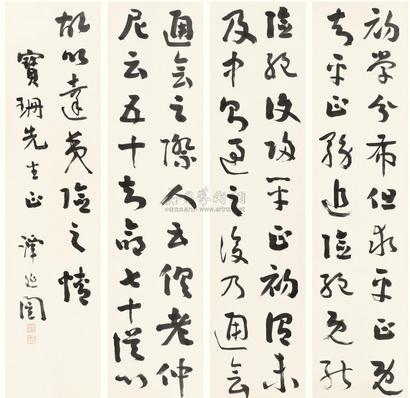 初學分布但求平正既
知平正務追險絕既能
險絕復歸平正初謂未
及中則過之後乃通會
通會之際人書俱老仲
尼云五十知命七十從心
故以達夷險之情
寶珊先生正 譚延闓